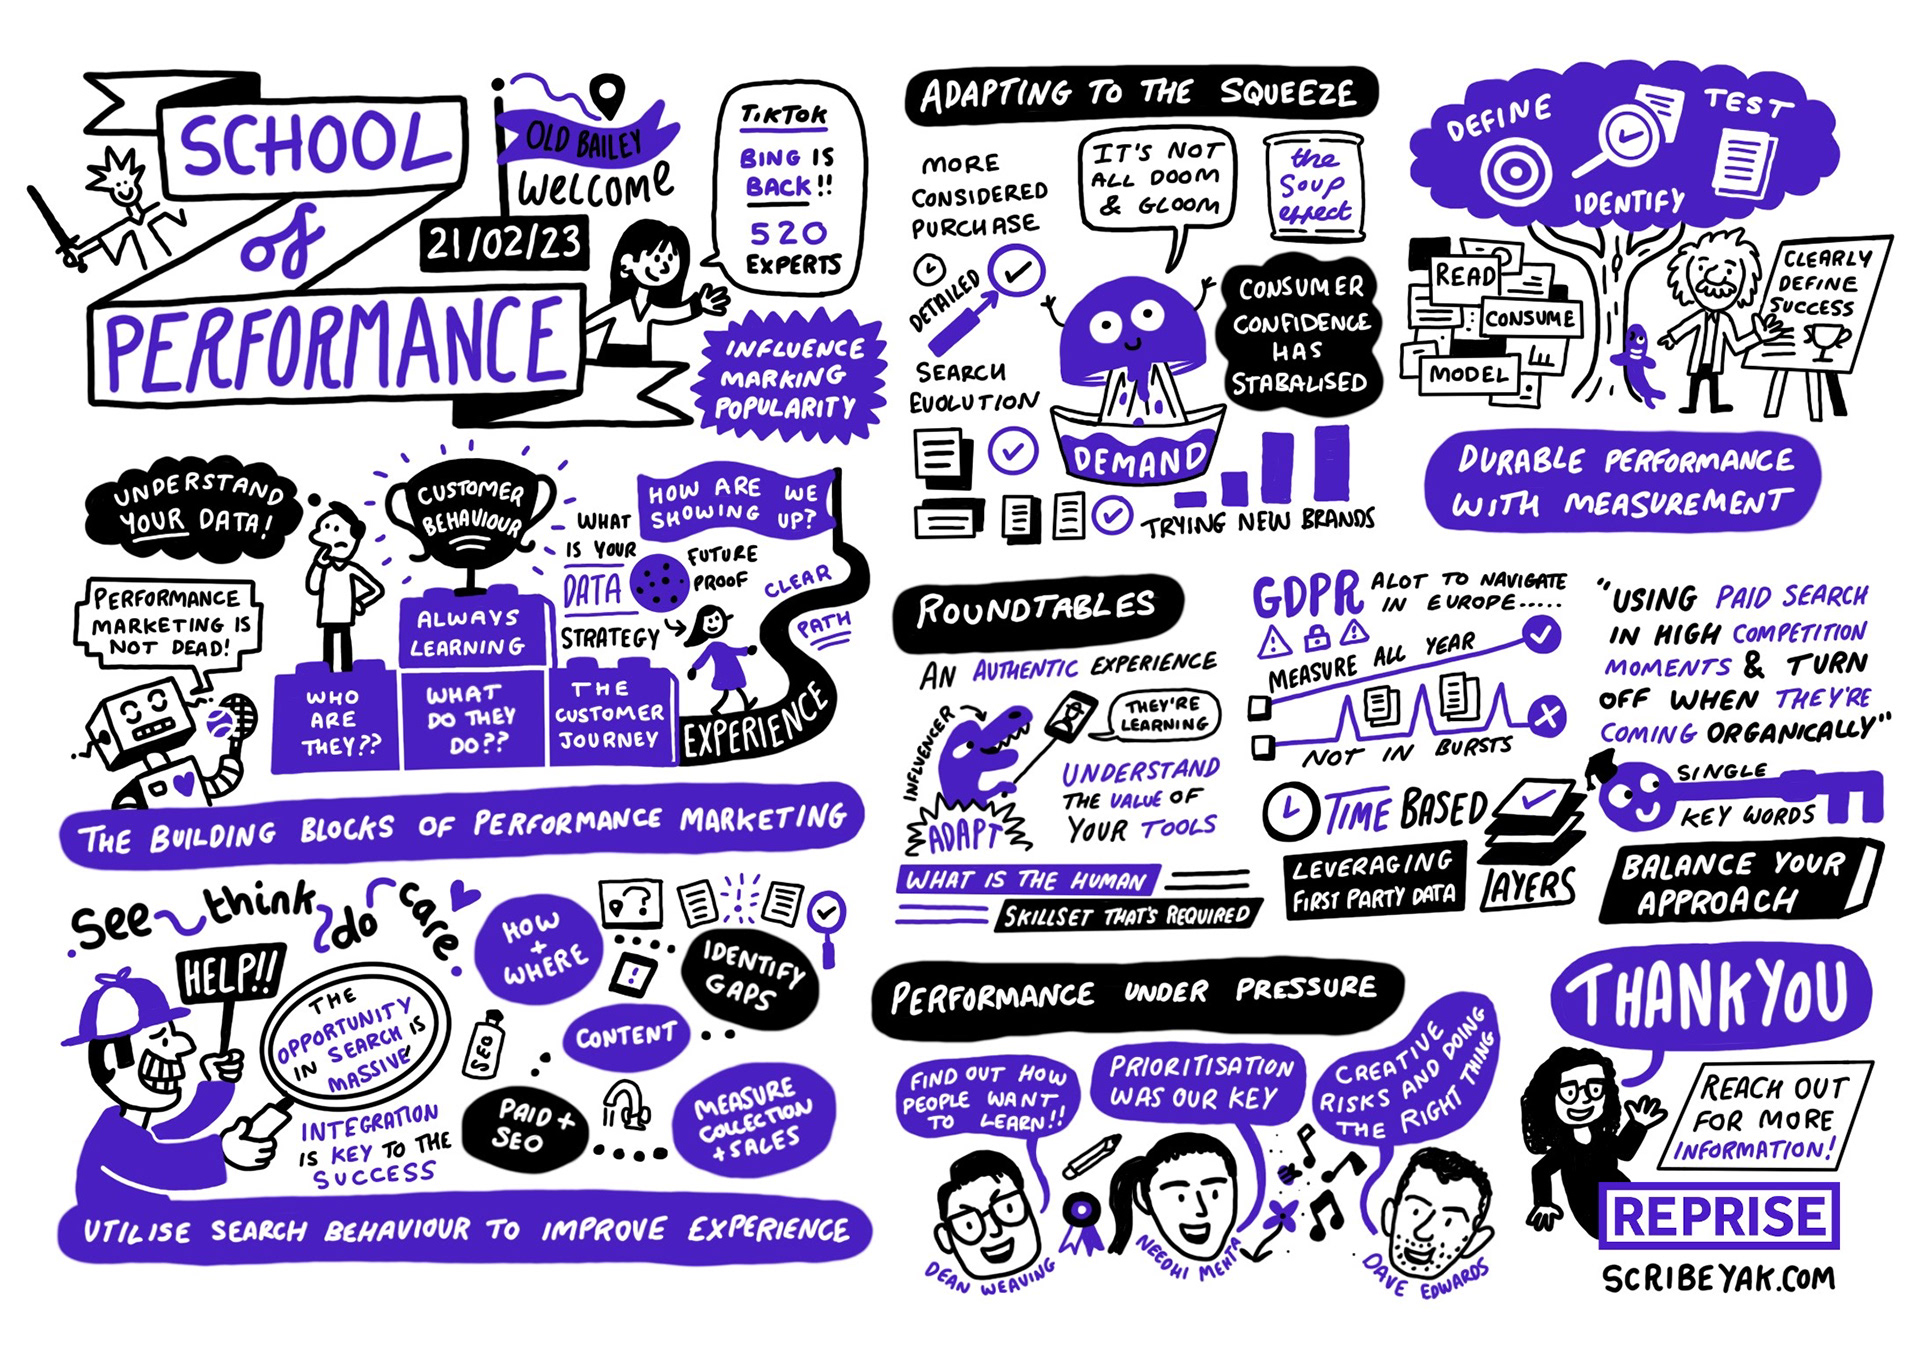 SCHOOL
of
PERFORMANCE
OLD BAILEY
WELCOME
21/02/23
TIKTOK
BING IS
BACK!!
520
EXPERTS
INFLUENCE
MARKING
POPULARITY
UNDERSTAND
YOUR DATA!
PERFORMANCE
MARKETING IS
NOT DEAD!
CUSTOMER
BEHAVIOUR
ALWAYS
LEARNING
WHO
ARE
THEY??
WHAT
DO THEY
DO??
THE
CUSTOMER
JOURNEY
WHAT
IS YOUR
DATA
STRATEGY
HOW ARE WE
SHOWING UP?
FUTURE
PROOF
CLEAR
PATH
EXPERIENCE
THE BUILDING BLOCKS OF PERFORMANCE MARKETING
See think do care
HELP!!
THE
OPPORTUNITY
IN SEARCH IS
MASSIVE
INTEGRATION
IS KEY TO THE
SUCCESS
HOW
+
WHERE
?
!
IDENTIFY
GAPS
CONTENT
SEO
PAID +
SEO
MEASURE
COLLECTION
+ SALES
UTILISE SEARCH BEHAVIOUR TO IMPROVE EXPERIENCE
ADAPTING TO THE SQUEEZE
MORE
CONSIDERED
PURCHASE
DETAILED
SEARCH
EVOLUTION
IT'S NOT
ALL DOOM
& GLOOM
the
Soup
effect
CONSUMER
CONFIDENCE
HAS
STABALISED
DEMAND
TRYING NEW BRANDS
DEFINE
TEST
IDENTIFY
READ
CONSUME
MODEL
CLEARLY
DEFINE
SUCCESS
DURABLE PERFORMANCE
WITH MEASUREMENT
ROUNDTABLES
AN AUTHENTIC EXPERIENCE
INFLUENCER
ADAPT
THEY'RE
LEARNING
UNDERSTAND
THE VALUE OF
YOUR TOOLS
WHAT IS THE HUMAN
SKILLSET THAT'S REQUIRED
GDPR ALOT TO NAVIGATE
IN EUROPE.....
MEASURE ALL YEAR
NOT IN BURSTS
TIME BASED
LEVERAGING
FIRST PARTY DATA
LAYERS
"USING PAID SEARCH
IN HIGH COMPETITION
MOMENTS & TURN
OFF WHEN THEY'RE
COMING ORGANICALLY"
SINGLE
KEY WORDS
BALANCE YOUR
APPROACH
PERFORMANCE UNDER PRESSURE
FIND OUT HOW
PEOPLE WANT
TO LEARN!!
PRIORITISATION
WAS OUR KEY
CREATIVE
RISKS AND DOING
THE RIGHT THING
DEAN WEAVING
NEEDHI MEHTA
DAVE EDWARDS
THANK YOU
REACH OUT
FOR MORE
INFORMATION!
REPRISE
SCRIBEYAK.COM